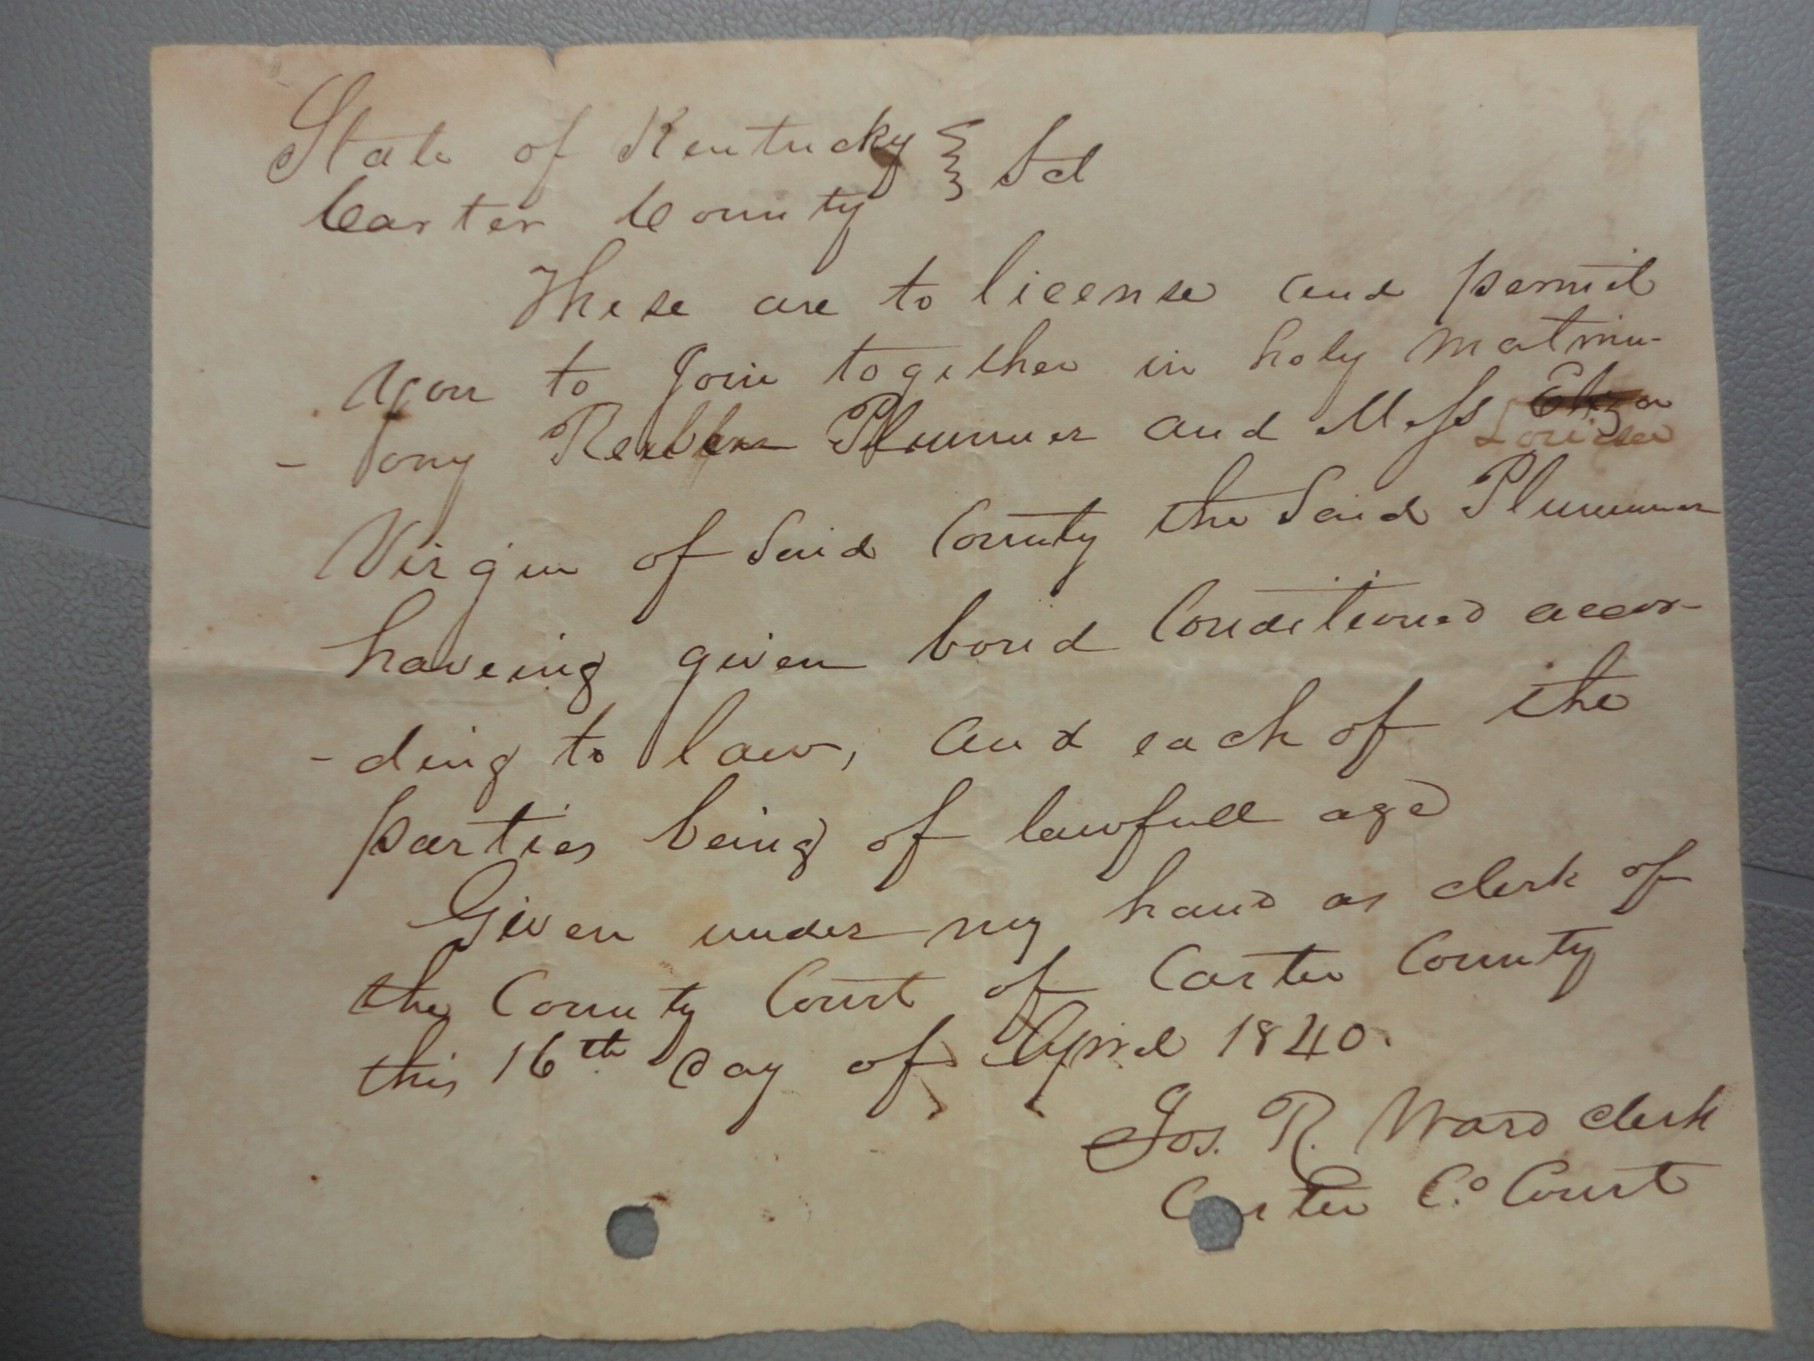 State of Kentucky } Sct
Carter County
These are to license and permit
you to Join together in holy matrimo-
- ony Reuben Plummer and Miss Eliza
Louisa
Virgin of Said County the Said Plummer
haveing given bond Conditioned accor-
- ding to law, and each of the
parties being of lawfull age
Given under my hand as clerk of
the County Court of Carter County
this 16th day of April 1840.
Jos. R. Ward clerk
Carter Co. Court